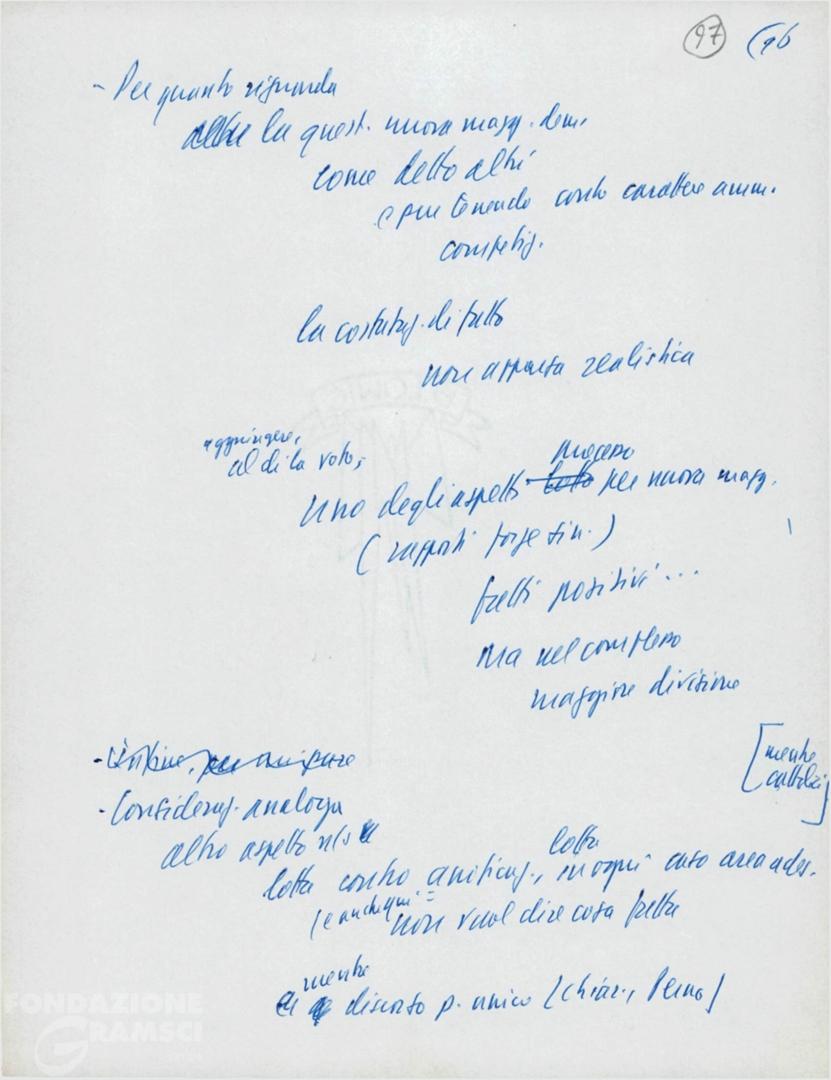 97 96
- Per quanto riguarda
la quest. nuova magg. dem.
come detto altri
e pur tenendo conto carattere amm.
competiz.
la costituz. di fatto
non appunta realistica
aggiungere,
al di là voto,
processo
uno degli aspetti lotta per nuova magg.
(rapporti forze sin.)
fatti positivi...
ma nel complesso
maggiore divisione
- Infine, per
[mentre
cattolici]
- Consideraz. analoga
altro aspetto
lotta
lotta contro unificaz., in ogni caso area ades.
(e anche qui
non vuol dire cosa fatta
mentre
discorso p. unico [chiar., Perna]
FONDAZIONE
GRAMSCI